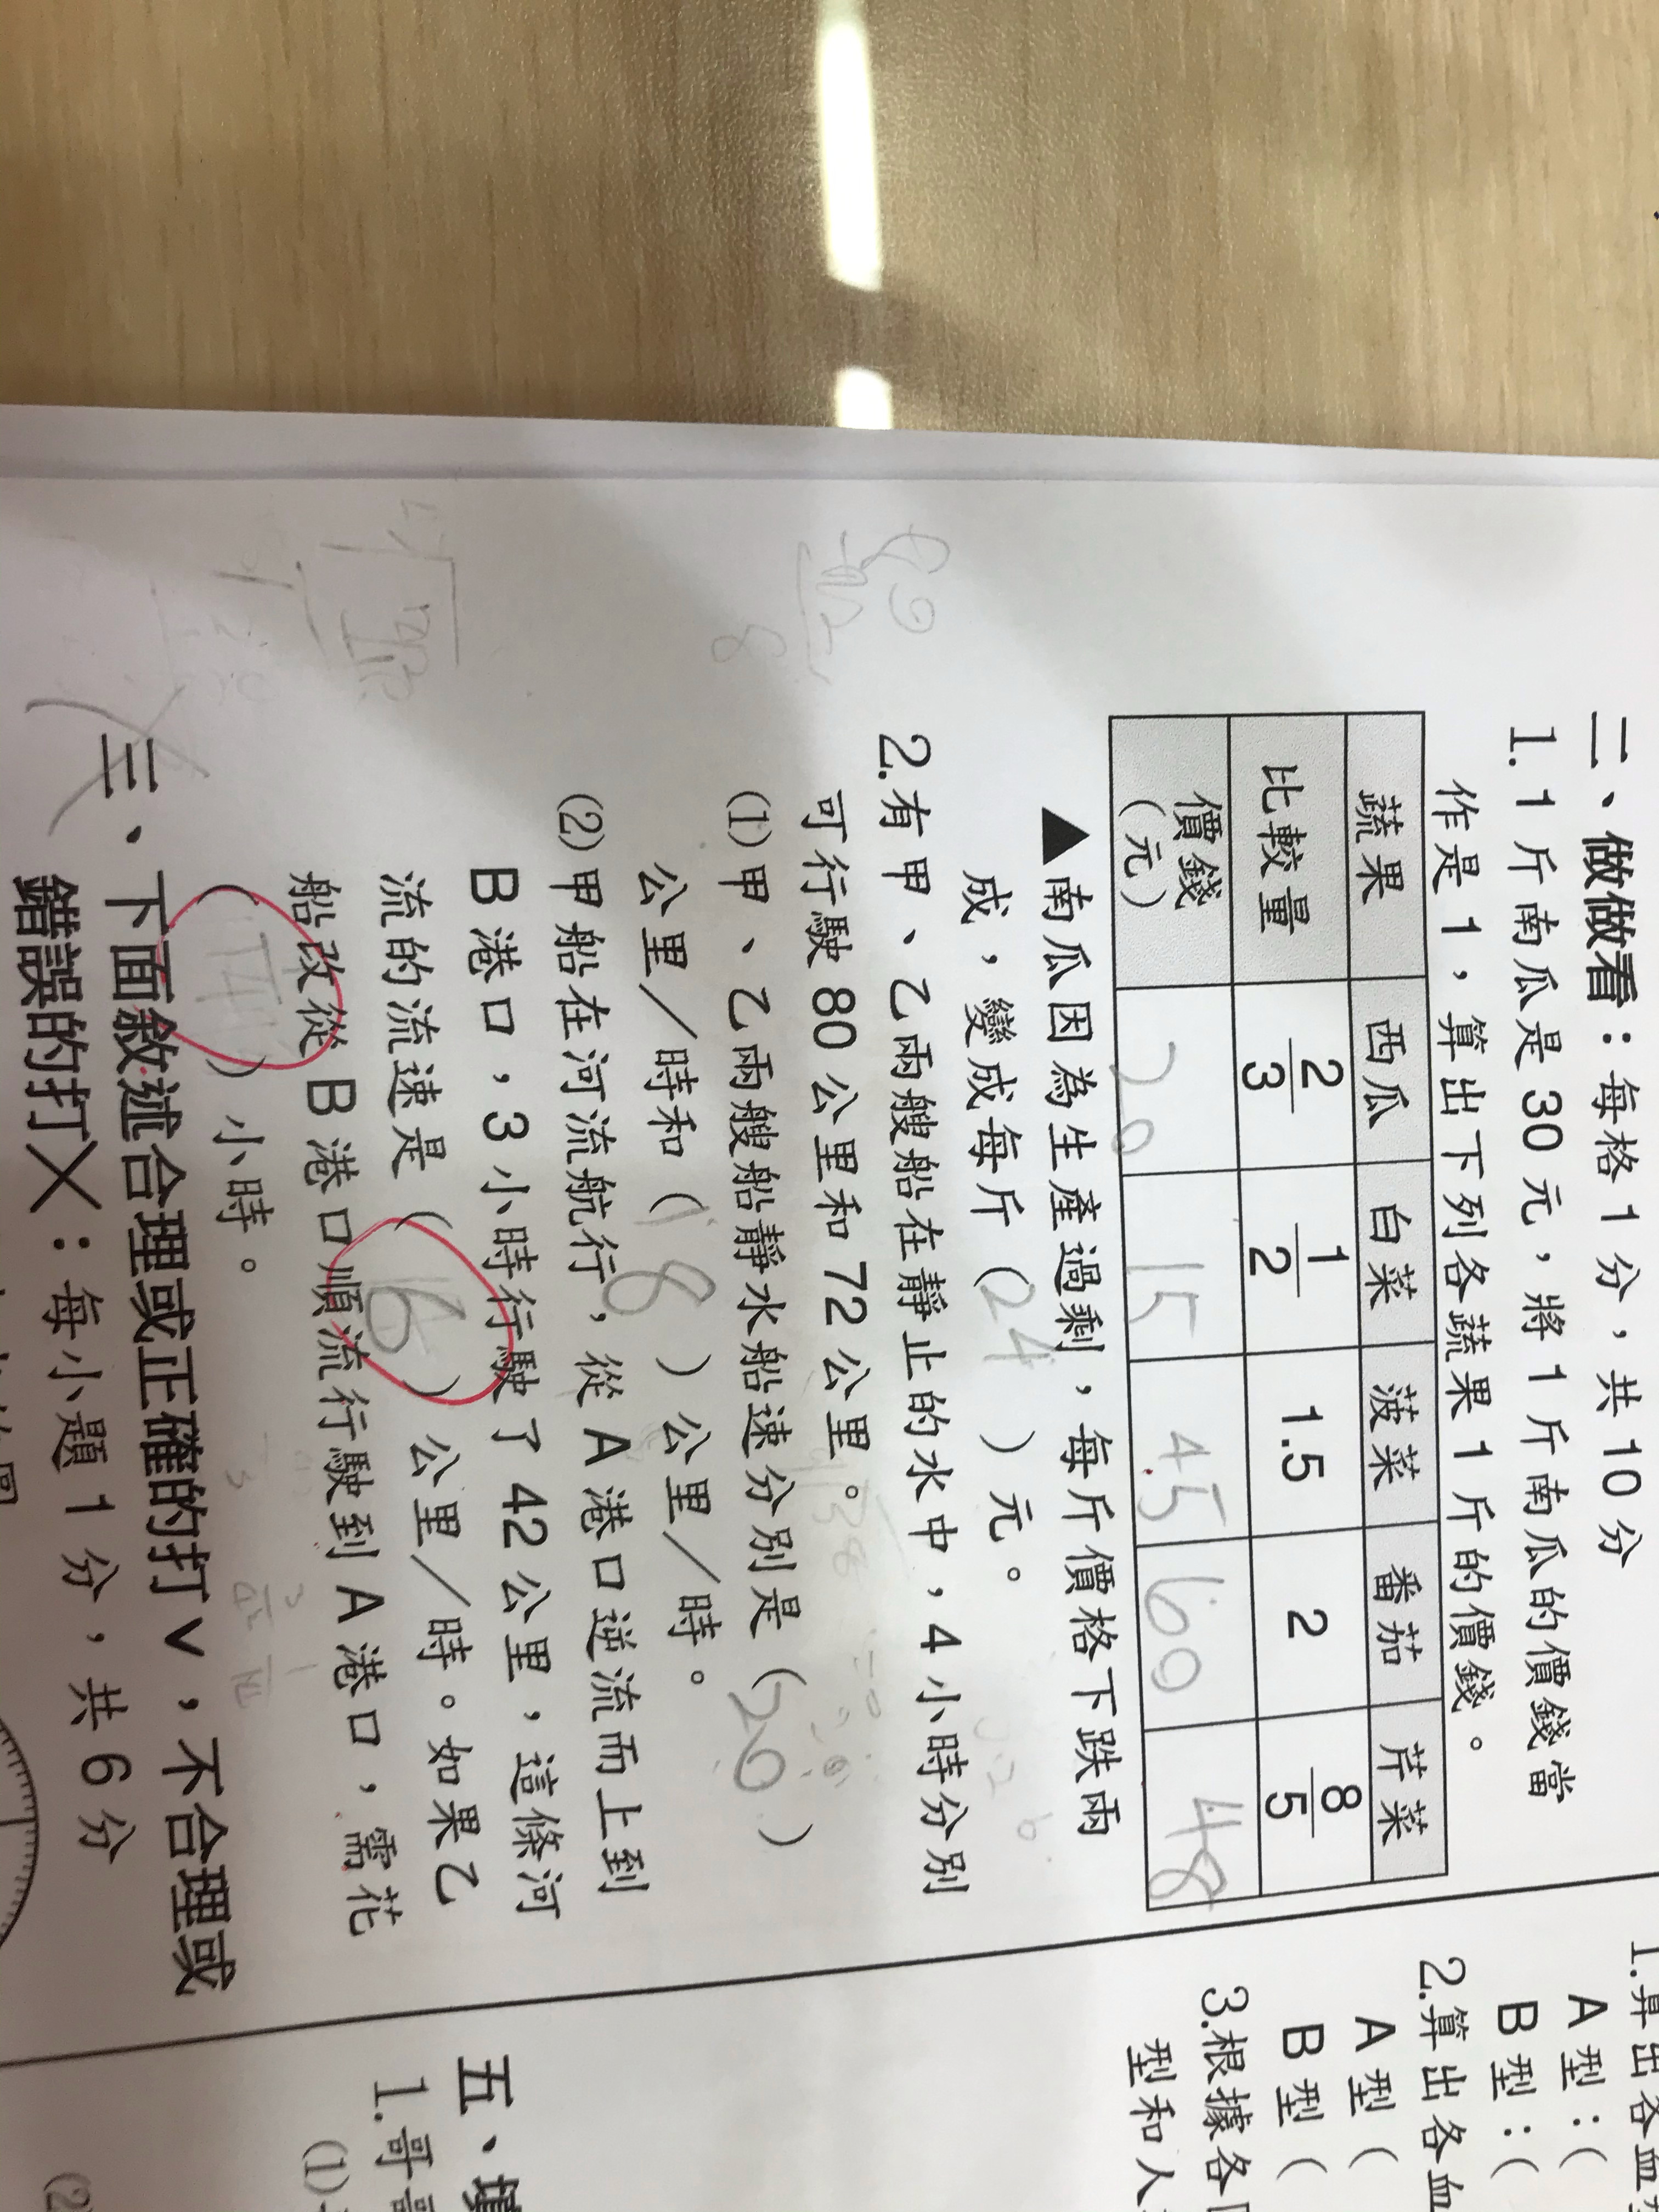 二、做做看：每格1分，共10分
1. 1斤南瓜是30元，將1斤南瓜的價錢當
作是1，算出下列各蔬果1斤的價錢。
蔬果 西瓜 白菜 菠菜 番茄 芹菜
比較量 2/3 1/2 1.5 2 8/5
價錢（元） 20 15 45 60 48
▲南瓜因為生產過剩，每斤價格下跌兩
成，變成每斤（24）元。
2.有甲、乙兩艘船在靜止的水中，4小時分別
可行駛80公里和72公里。
⑴甲、乙兩艘船靜水船速分別是（20）
公里／時和（18）公里／時。
⑵甲船在河流航行，從A港口逆流而上到
B港口，3小時行駛了42公里，這條河
流的流速是（）公里／時。如果乙
船改從B港口順流行駛到A港口，需花
（）小時。
三、下面敘述合理或正確的打∨，不合理或
錯誤的打╳：每小題1分，共6分
80
8
1.算出各血
A型：（
B型：（
2.算出各血
A型（
B型（
3.根據各
型和人
五、
1.哥
⑴
⑵